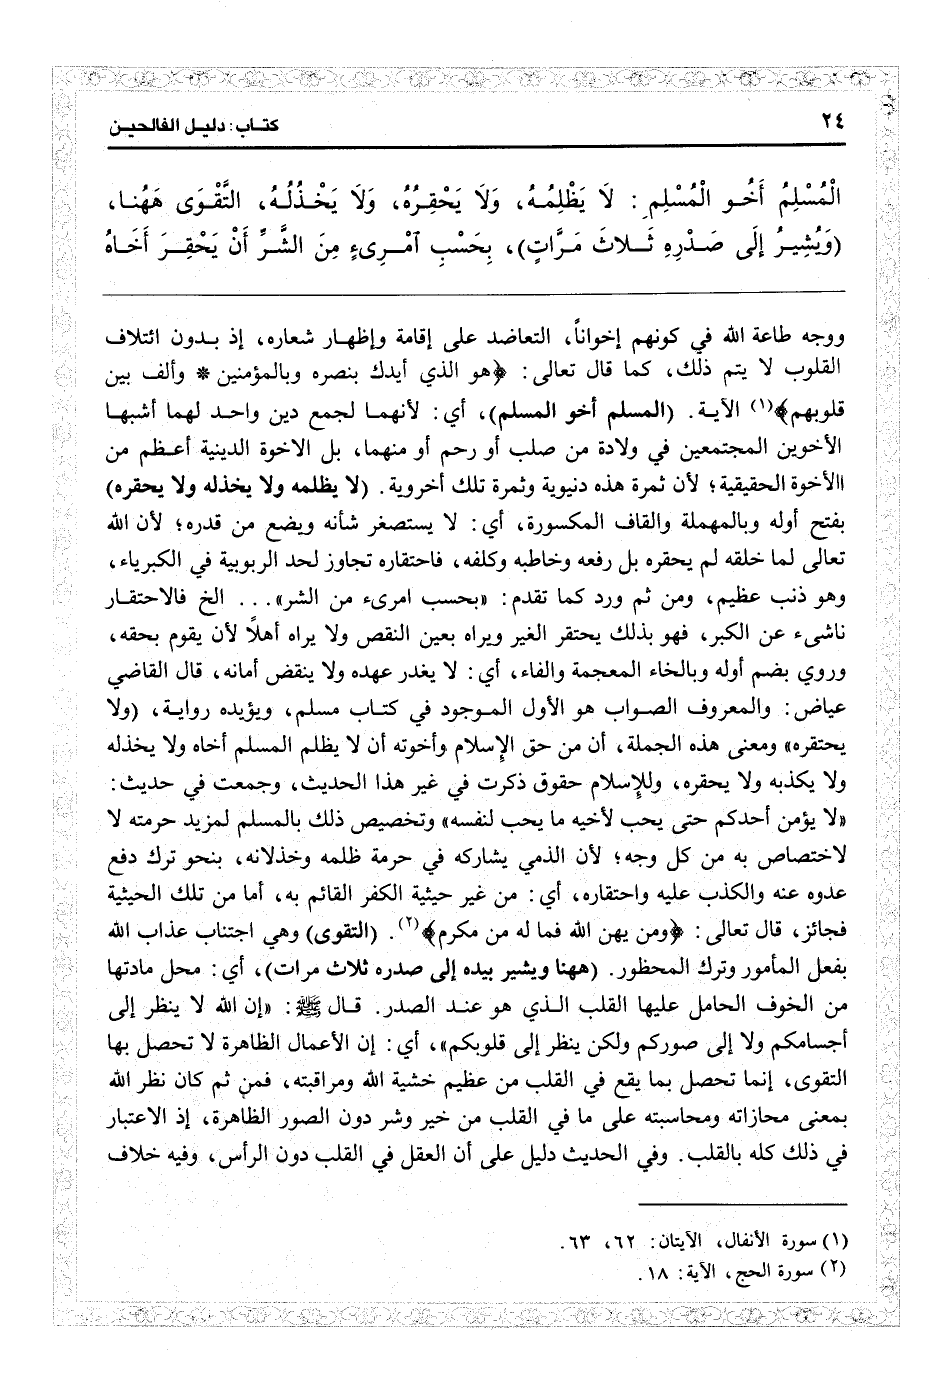 ٢٤
كتاب: دليل الفالحين
الْمُسْلِمُ أَخُو الْمُسْلِمِ: لَا يَظْلِمُهُ، وَلَا يَحْقِرُهُ، وَلَا يَخْذُلُهُ، التَّقْوَى هَهُنا،
(وَيُشِيرُ إلَى صَدْرِهِ ثَلاثَ مَرَّاتٍ)، بِحَسْبِ آمْرِىءٍ مِنَ الشَّرِّ أَنْ يَحْقِرَ أَخَاهُ
ووجه طاعة الله في كونهم إخواناً، التعاضد على إقامة وإظهار شعاره، إذ بدون ائتلاف
القلوب لا يتم ذلك، كما قال تعالى: ﴿هو الذي أيدك بنصره وبالمؤمنين * وألف بين
قلوبهم﴾(١) الآية. (المسلم أخو المسلم)، أي: لأنهما لجمع دين واحد لهما أشبها
الأخوين المجتمعين في ولادة من صلب أو رحم أو منهما، بل الاخوة الدينية أعظم من
االأخوة الحقيقية؛ لأن ثمرة هذه دنيوية وثمرة تلك أخروية. (لا يظلمه ولا يخذله ولا يحقره)
بفتح أوله وبالمهملة والقاف المكسورة، أي: لا يستصغر شأنه ويضع من قدره؛ لأن الله
تعالى لما خلقه لم يحقره بل رفعه وخاطبه وكلفه، فاحتقاره تجاوز لحد الربوبية في الكبرياء،
وهو ذنب عظيم، ومن ثم ورد كما تقدم: «بحسب امرىء من الشر»... الخ فالاحتقار
ناشىء عن الكبر، فهو بذلك يحتقر الغير ويراه بعين النقص ولا يراه أهلاً لأن يقوم بحقه،
وروي بضم أوله وبالخاء المعجمة والفاء، أي: لا يغدر عهده ولا ينقض أمانه، قال القاضي
عياض: والمعروف الصواب هو الأول الموجود في كتاب مسلم، ويؤيده رواية، (ولا
يحتقره» ومعنى هذه الجملة، أن من حق الإسلام وأخوته أن لا يظلم المسلم أخاه ولا يخذله
ولا يكذبه ولا يحقره، وللإسلام حقوق ذكرت في غير هذا الحديث، وجمعت في حديث:
«لا يؤمن أحدكم حتى يحب لأخيه ما يحب لنفسه» وتخصيص ذلك بالمسلم لمزيد حرمته لا
لاختصاص به من كل وجه؛ لأن الذمي يشاركه في حرمة ظلمه وخذلانه، بنحو ترك دفع
عدوه عنه والكذب عليه واحتقاره، أي: من غير حيثية الكفر القائم به، أما من تلك الحيثية
فجائز، قال تعالى: ﴿ومن يهن الله فما له من مكرم﴾(٢). (التقوى) وهي اجتناب عذاب الله
بفعل المأمور وترك المحظور. (ههنا ويشير بيده إلى صدره ثلاث مرات)، أي: محل مادتها
من الخوف الحامل عليها القلب الذي هو عند الصدر. قال ﷺ: «إن الله لا ينظر إلى
أجسامكم ولا إلى صوركم ولكن ينظر إلى قلوبكم»، أي: إن الأعمال الظاهرة لا تحصل بها
التقوى، إنما تحصل بما يقع في القلب من عظيم خشية الله ومراقبته، فمن ثم كان نظر الله
بمعنى مجازاته ومحاسبته على ما في القلب من خير وشر دون الصور الظاهرة، إذ الاعتبار
في ذلك كله بالقلب. وفي الحديث دليل على أن العقل في القلب دون الرأس، وفيه خلاف
(١) سورة الأنفال، الآيتان: ٦٢، ٦٣.
(٢) سورة الحج، الآية: ١٨.